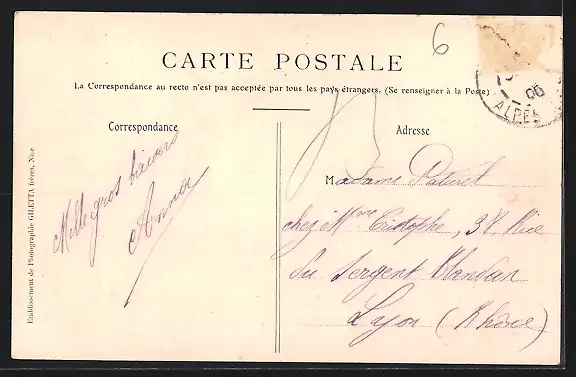 6
CARTE POSTALE
La Correspondance au recto n'est pas acceptée par tous les pays étrangers. (Se renseigner à la Poste)
06
ALPES
Correspondance
Adresse
Mille gros baisers
Anna
Madame Paturet
chez Mme Cristophe, 38 Rue
du Sergent Blandan
Lyon (Rhône)
Etablissement de Photographie GILETTA frères, Nice